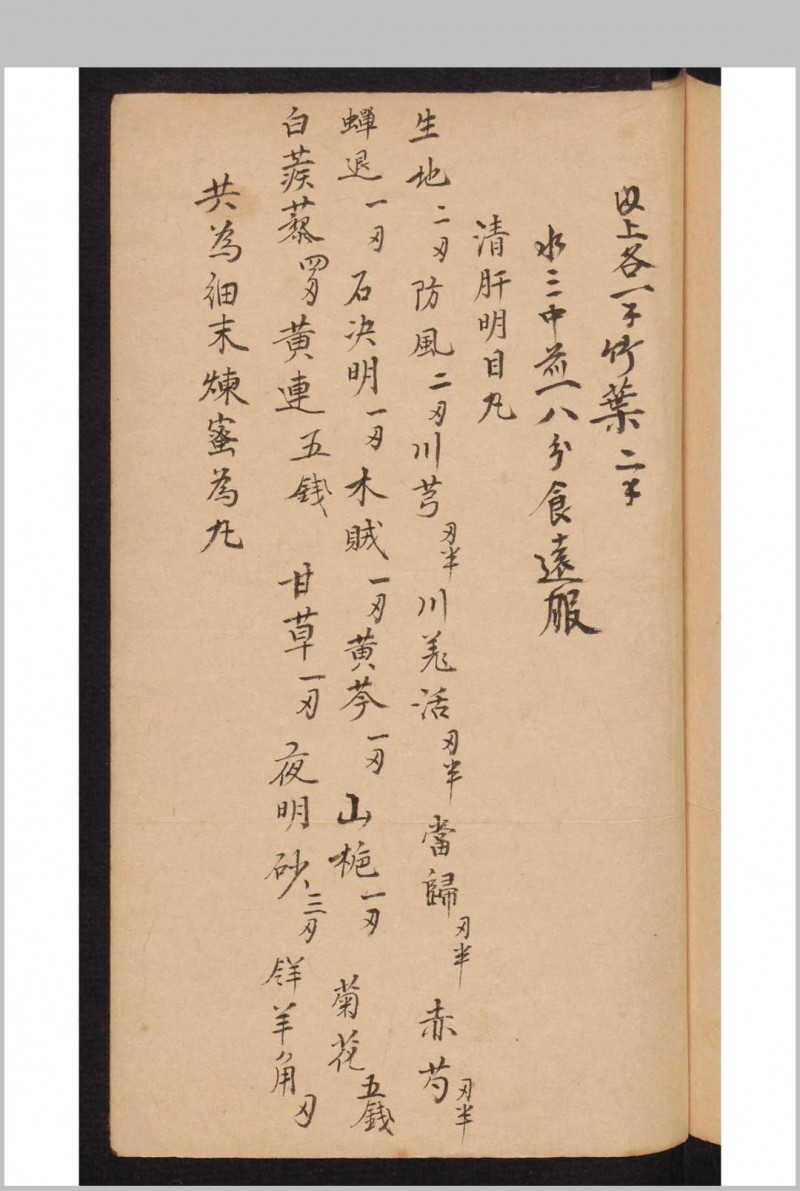 以上各一钱竹葉二钱
水三中煎一八分食遠服
清肝明目丸
生地二刄防風二刄川芎刄半川羗活刄半當歸刄半赤芍刄半
蟬退一刄石决明一刄木賊一刄黄芩一刄山栀一刄菊花五錢
白蒺藜四刄黄連五錢甘草一刄夜明砂三刄羚羊角刄
共為細末煉蜜為丸